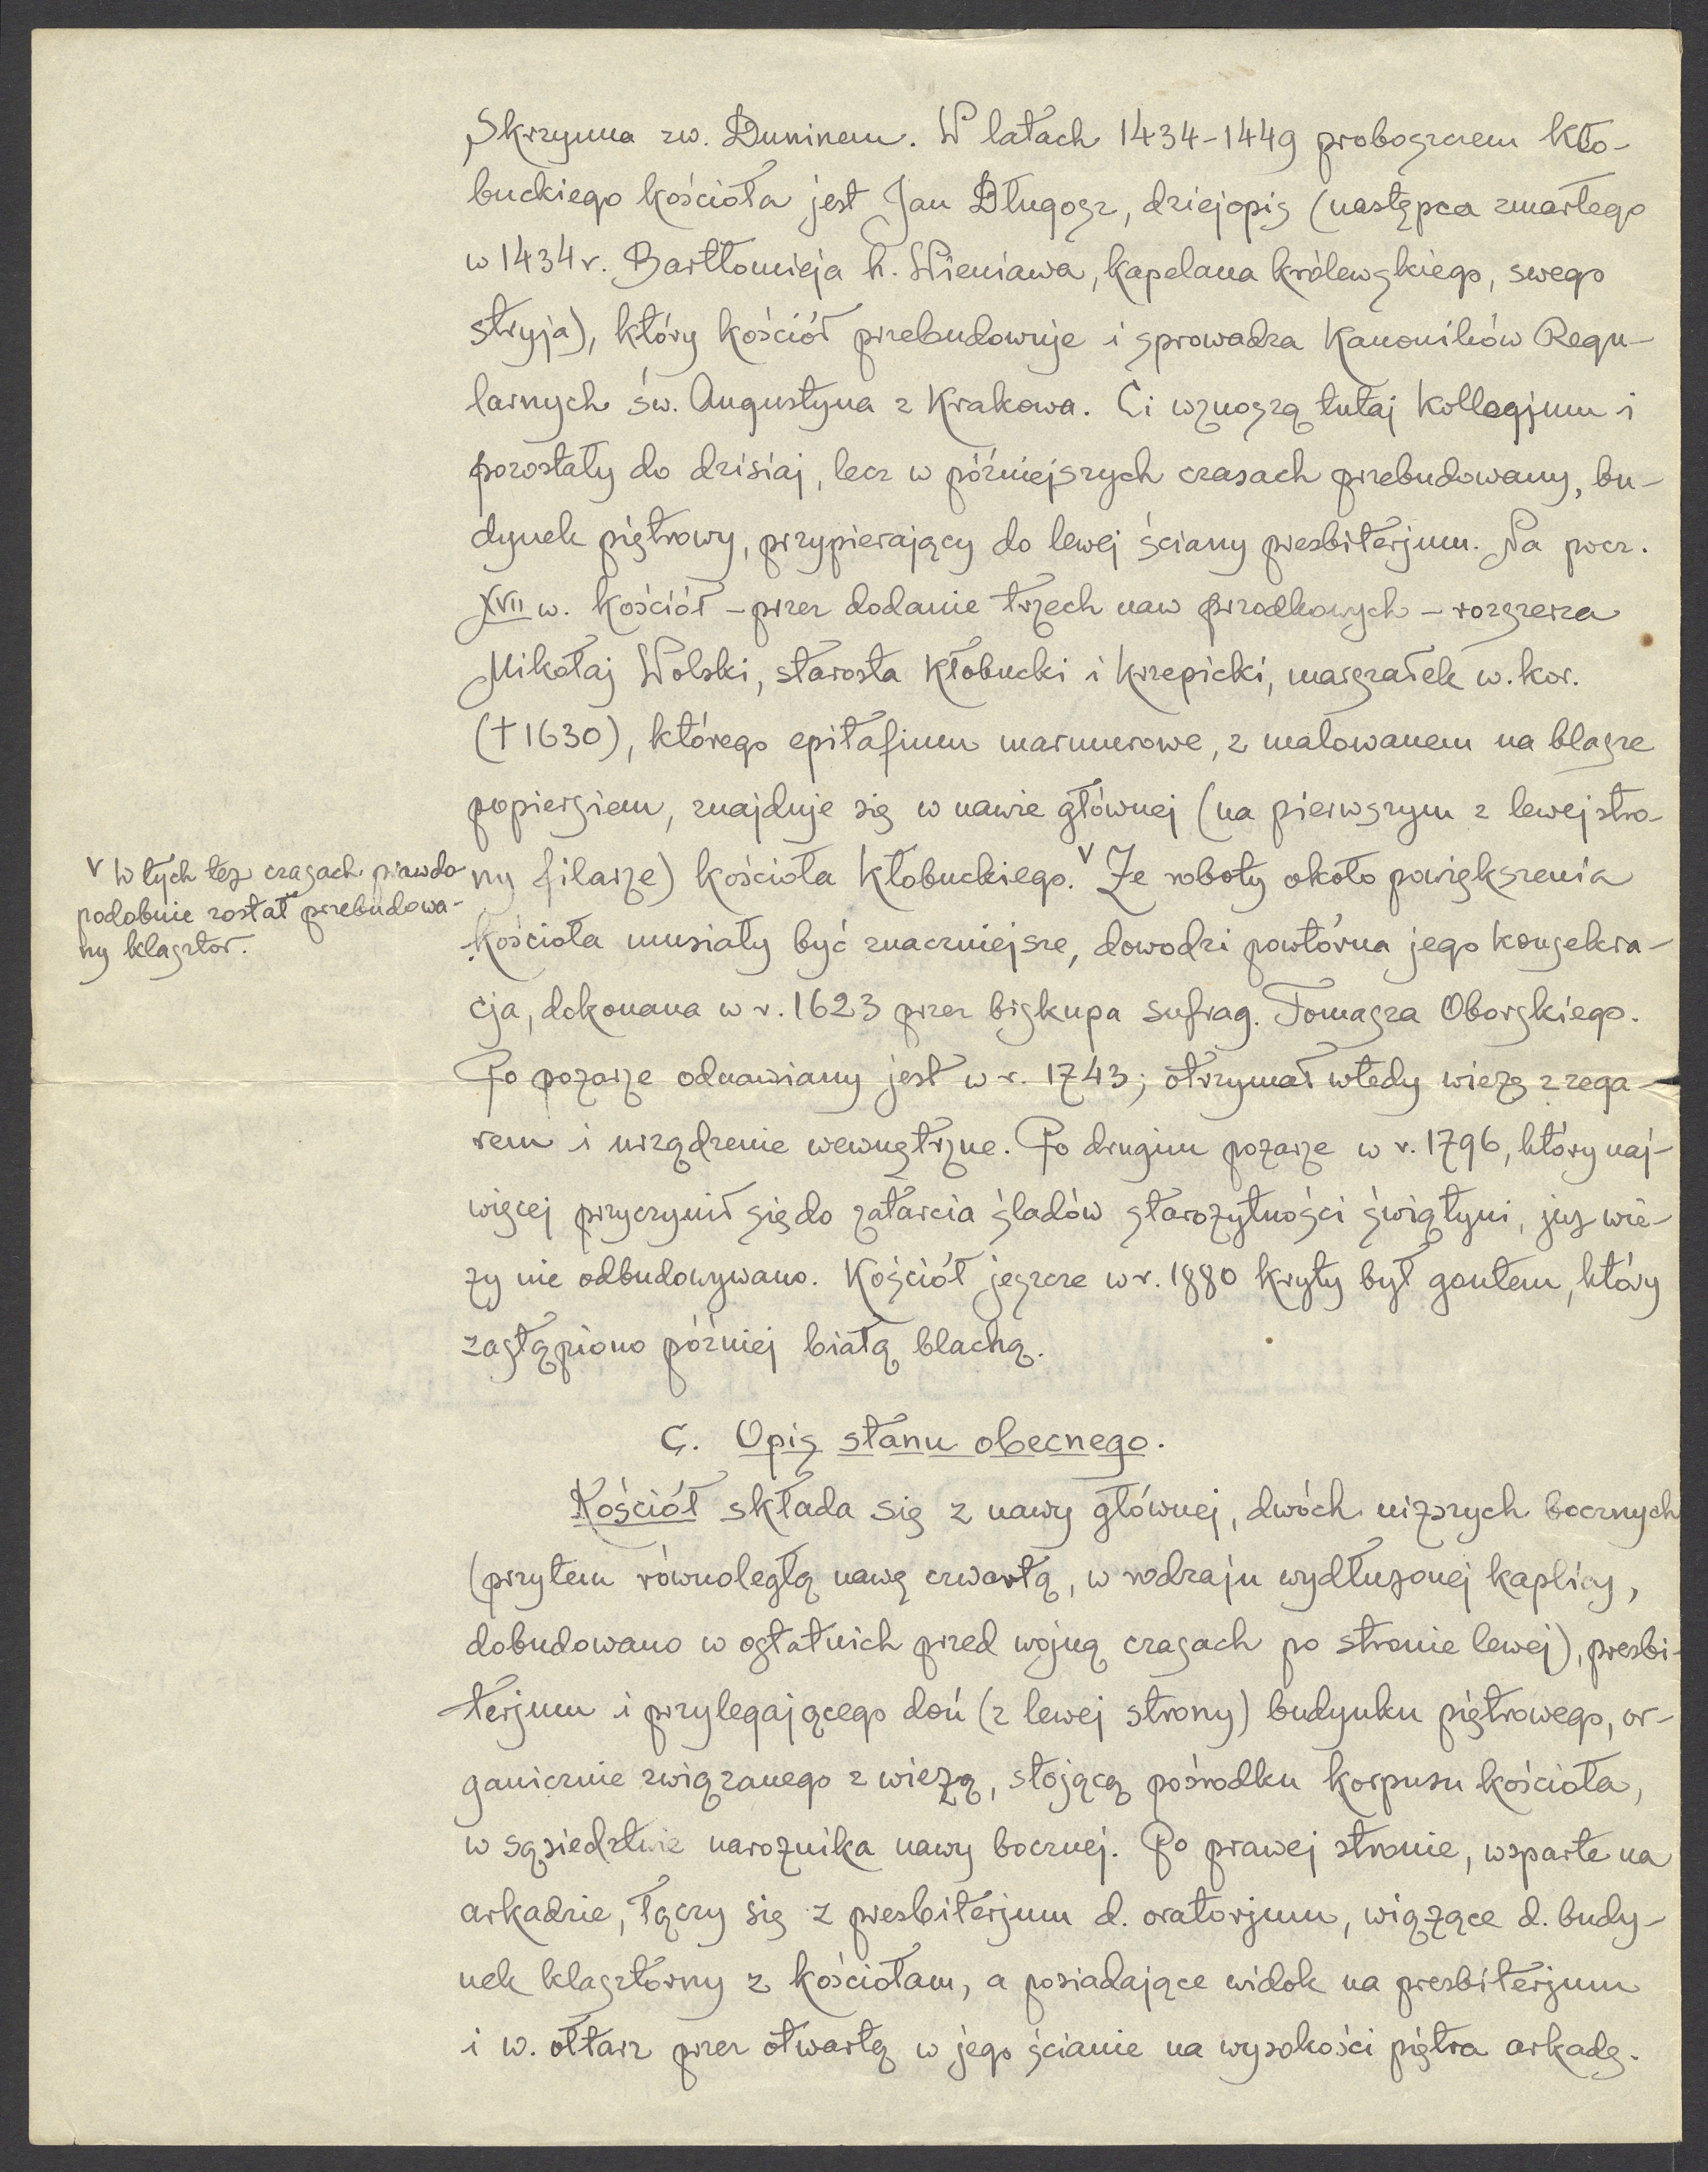 Skrzynna zw. Duninem. W latach 1434-1449 proboszczem kło-
buckiego kościoła jest Jan Długosz, dziejopis (następca zmarłego
w 1434 r. Bartłomieja h. Wieniawa, kapelana królewskiego, swego
stryja), który kościół przebudowuje i sprowadza Kanoników Regu-
larnych św. Augustyna z Krakowa. Ci wznoszą tutaj kollegjum i
pozostały do dzisiaj, lecz w późniejszych czasach przebudowany, bu-
dynek piętrowy, przypierający do lewej ściany presbiterjum. Na pocz.
XVII w. kościół - przez dodanie trzech naw przodkowych - rozszerza
Mikołaj Wolski, starosta Kłobucki i Krzepicki, marszałek w. kor.
(†1630), którego epitafium marmurowe, z malowanem na blasze
popiersiem, znajduje się w nawie głównej (na pierwszym z lewej stro-
ny filarze) kościoła Kłobuckiego. V Że roboty około powiększenia
kościoła musiały być znaczniejsze, dowodzi powtórna jego konsekra-
cja, dokonana w r. 1623 przez biskupa sufrag. Tomasza Oborskiego.
Po pożarze odnawiany jest w r. 1743; otrzymał wtedy wieżę z zega-
rem i urządzenie wewnętrzne. Po drugim pożarze w r. 1796, który naj-
więcej przyczynił się do zatarcia śladów starożytności świątyni, już wie-
ży nie odbudowywano. Kościół jeszcze w r. 1880 kryty był gontem, który
zastąpiono później białą blachą.
V W tych też czasach prawdo-
podobnie został przebudowa-
ny klasztor.
C. Opis stanu obecnego.
Kościół składa się z nawy głównej, dwóch niższych bocznych
(przytem równoległą nawę czwartą, w rodzaju wydłużonej kaplicy,
dobudowano w ostatnich przed wojną czasach po stronie lewej), presbi-
terjum i przylegającego doń (z lewej strony) budynku piętrowego, or-
ganicznie związanego z wieżą, stojącą pośrodku korpusu kościoła,
w sąsiedztwie narożnika nawy bocznej. Po prawej stronie, wsparte na
arkadzie, łączy się z presbiterjum d. oratorjum, wiążące d. budy-
nek klasztorny z kościołam, a posiadające widok na presbiterjum
i w. ołtarz przez otwartą w jego ścianie na wysokości piętra arkadę.